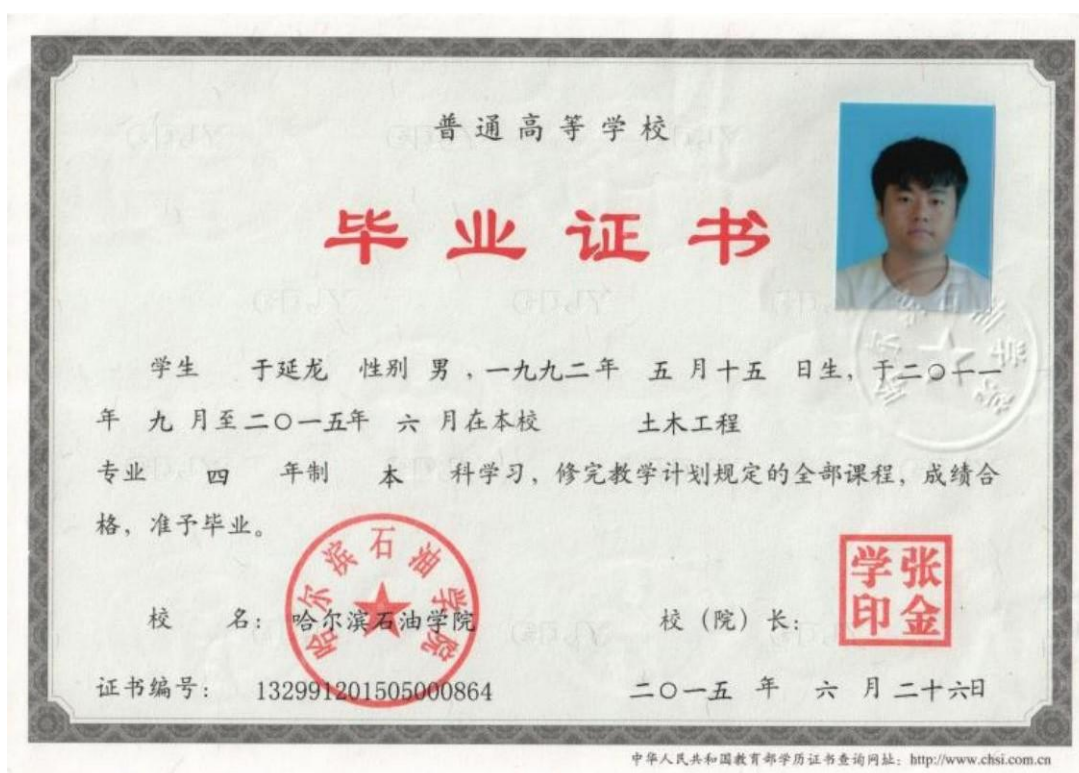 普通高等学校
毕业证书
学生 于延龙 性别 男，一九九二年 五 月十五 日生，于二〇一一
年 九 月至二〇一五年 六 月在本校 土木工程
专业 四 年制 本 科学习，修完教学计划规定的全部课程，成绩合
格，准予毕业。
哈尔滨石油学院
校 名：哈尔滨石油学院 校（院）长：
张金学印
证书编号： 132991201505000864 二〇一五 年 六 月 二十六日
中华人民共和国教育部学历证书查询网址：http://www.chsi.com.cn